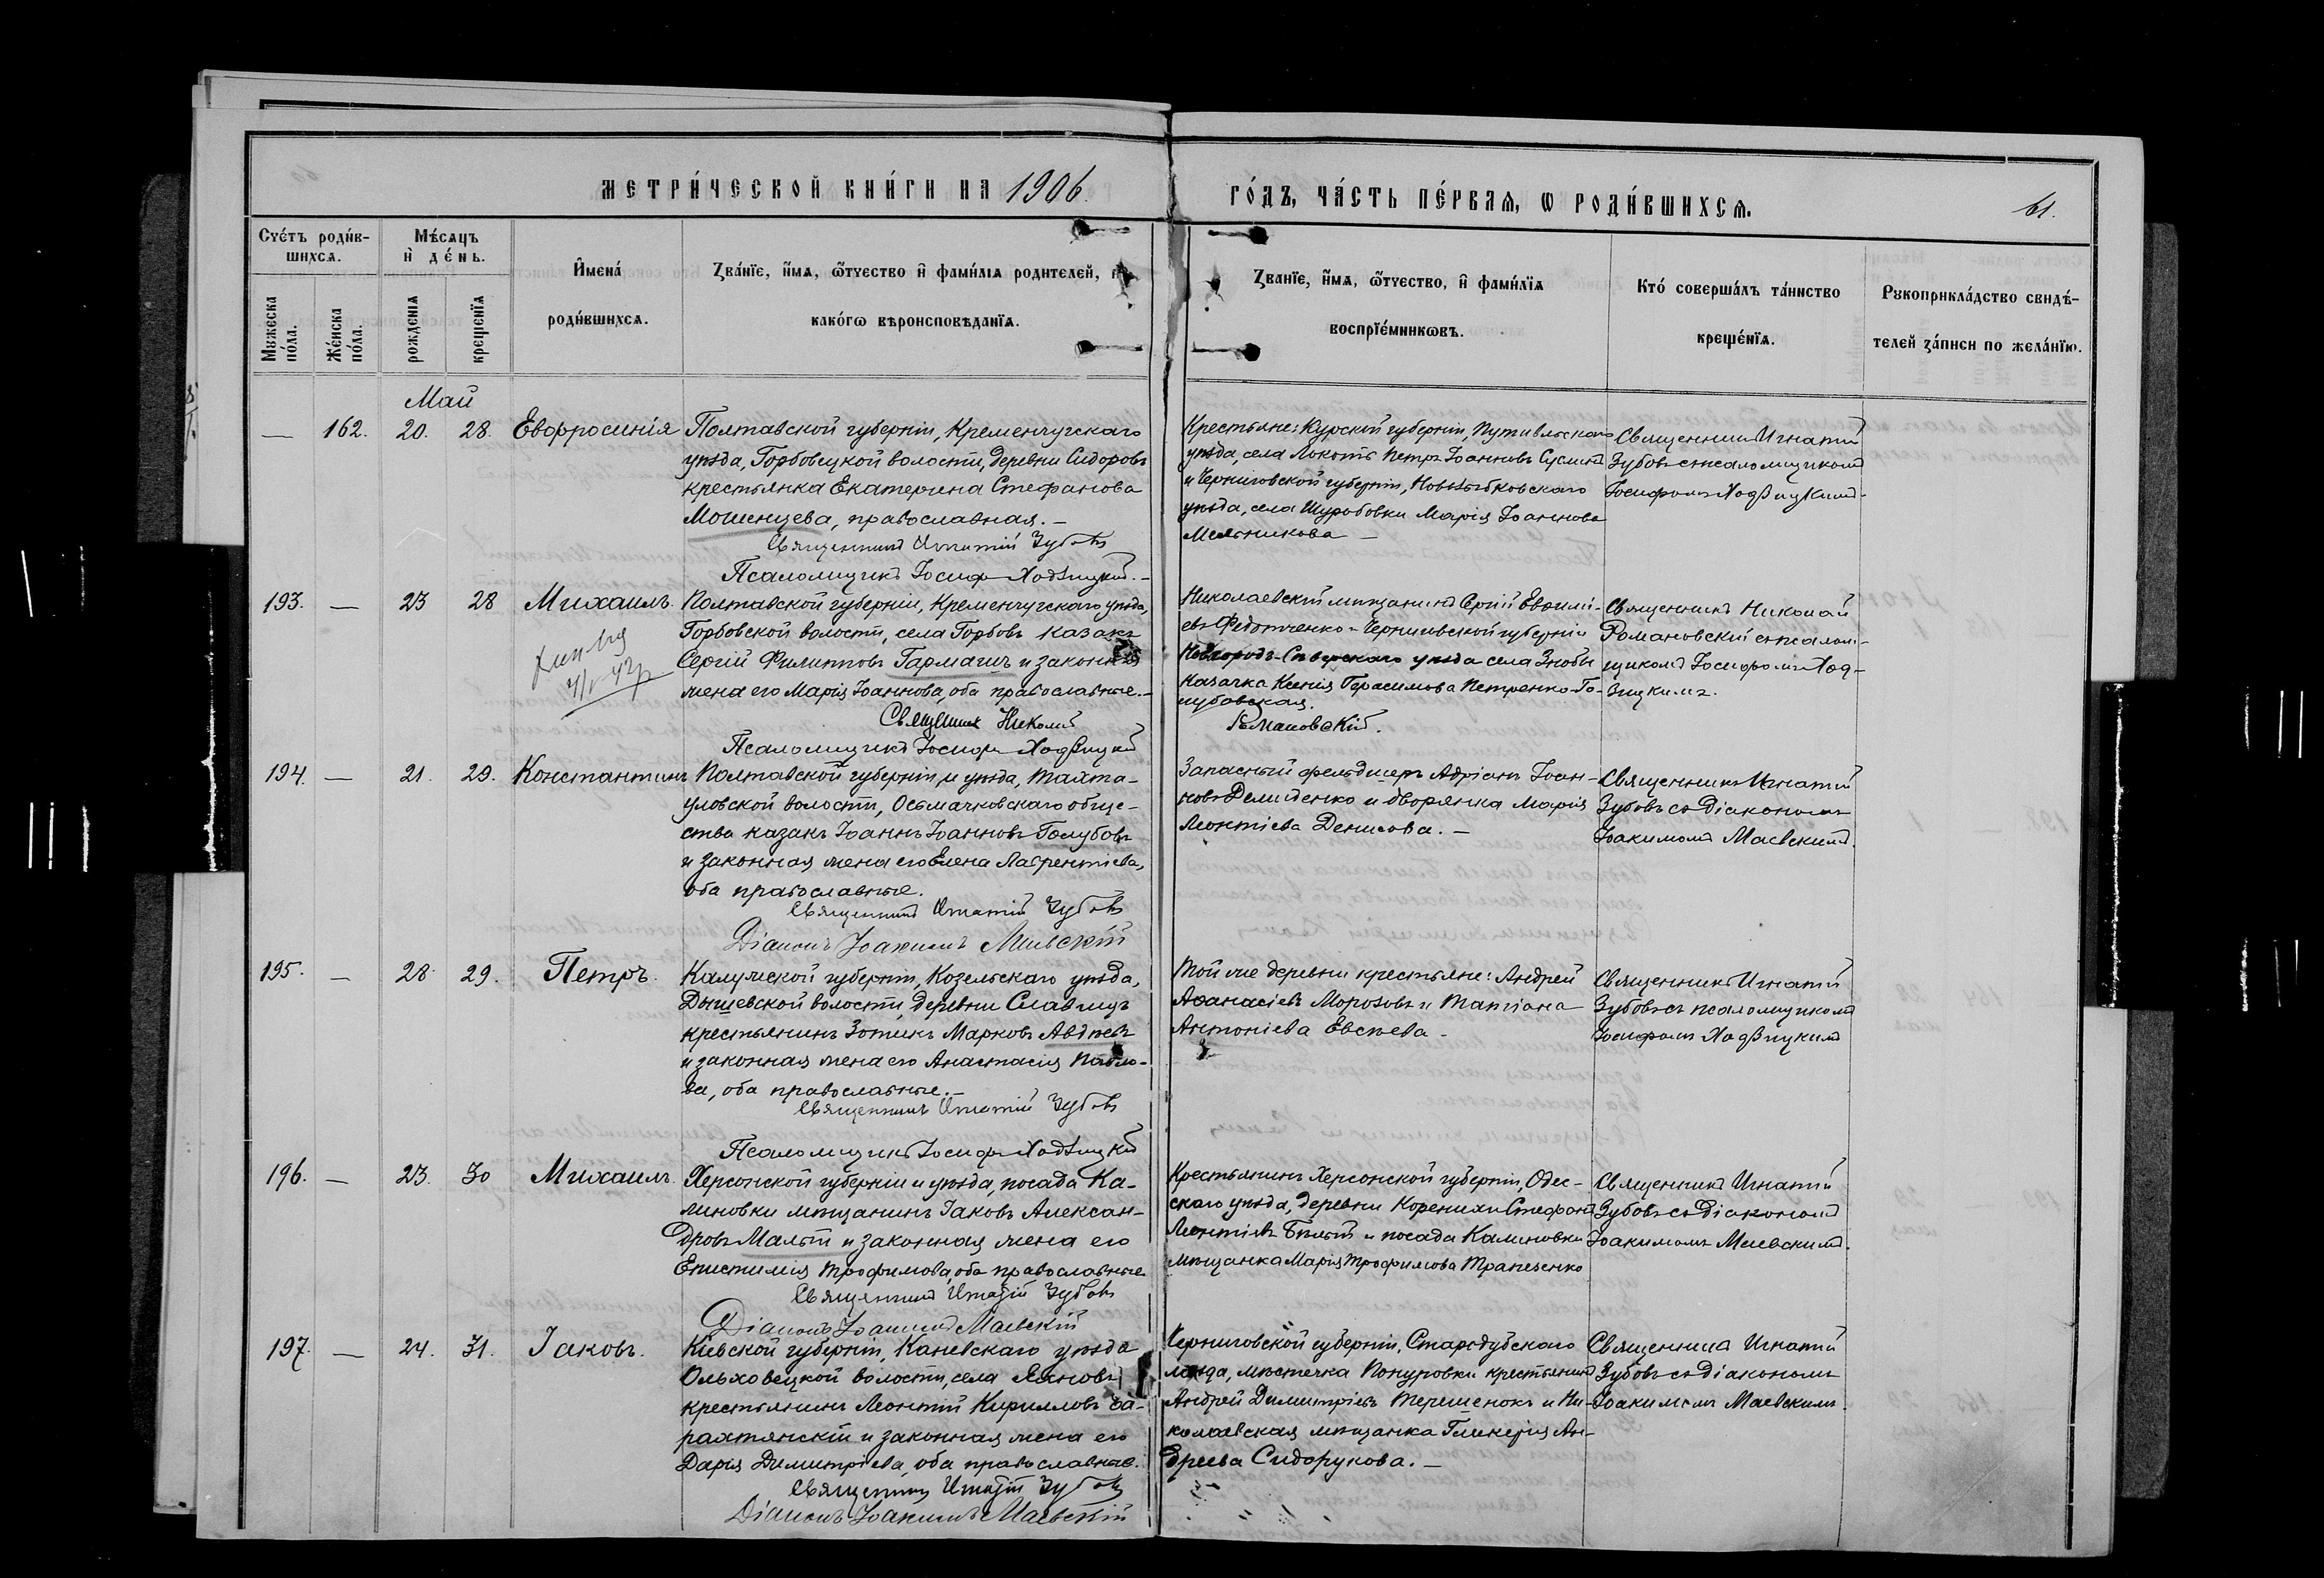 МЕТРИ́ЧЕСКОЙ КНИ́ГИ НА 1906.
ГО́ДЪ, ЧА́СТЬ ПЕ́РВАѦ, Ѡ РОДИ́ВШИХСѦ.
61.
Сче́тъ роди́в-
шихсѧ.
Мꙋжеска по́ла.
Же́нска по́ла.
Мѣ́сѧцъ
и҆ де́нь.
рожденїѧ
крещенїѧ
И҆мена́
роди́вшихсѧ.
Зва́нїе, и҆́мѧ, ѻ҆́тчество и҆ фами́лїѧ родителей, и҆
како́гѡ вѣроисповѣданїѧ.
Званїе, и҆́мѧ, ѻ҆́тчество, и҆ фами́лїѧ
воспрїе́мникѡвъ.
Кто́ соверша́лъ та́инство
креще́нїѧ.
Рꙋкоприкла́дство свидѣ́-
телей за́писи по жела́нїю.
Май
— 162. 20. 28. Евфросинія
Полтавской губерніи, Кременчугскаго
уѣзда, Горбовецкой волости, деревни Сидоровъ
крестьянка Екатерина Стефанова
Мошенцева, православная. —
Священникъ Игнатій Зубовъ
Псаломщикъ Іосифъ Ходзицкій. —
Крестьяне: Курской губерніи, Путивльскаго
уѣзда, села Локоть Петръ Іоанновъ
и Черниговской губерніи, Новозыбковскаго
уѣзда, села Шуробовки Марія Іоаннова
Мельникова —
Священникъ Игнатій
Зубовъ съ псаломщикомъ
Іосифомъ Ходзицкимъ.
193. — 23 28 Михаилъ.
Полтавской губерніи, Кременчугскаго уѣзда,
Горбовской волости, села Горбовъ казакъ
Сергій Филипповъ Гармашъ и законная
жена его Марія Іоаннова, оба православные. —
Священникъ Николай
Романовскій.
Псаломщикъ Іосифъ Ходзицкій
Николаевскій мѣщанинъ Сергій Евѳимі-
евъ Федотченко и Черниговской губерніи
Новгородъ-Сѣверскаго уѣзда села Знобы
казачка Ксенія Герасимова Петренко-Го-
лубовская.
Священникъ Николай
Романовскій съ псалом-
щикомъ Іосифомъ Ход-
зицкимъ.
194. — 21. 29. Константинъ
Полтавской губерніи, и уѣзда, Тахта-
уловской волости, Осьмачковскаго обще-
ства казакъ Іоаннъ Іоанновъ Голубовъ
и законная жена его Елена Лаврентіева,
оба православные.
Священникъ Игнатій Зубовъ
Діаконъ Іоакимъ Маевскій
Запасный фельдшеръ Адріанъ Іоан-
новъ Демиденко и дворянка Марія
Леонтіева Денисова. —
Священникъ Игнатій
Зубовъ съ діакономъ
Іоакимомъ Маевскимъ.
195. — 28. 29. Петръ.
Калужской губерніи, Козельскаго уѣзда,
Дешевской волости, деревни Славицъ
крестьянинъ Зотикъ Марковъ Авдѣевъ
и законная жена его Анастасія Павло-
ва, оба православные. —
Священникъ Игнатій Зубовъ
Псаломщикъ Іосифъ Ходзицкій
Той же деревни крестьяне: Андрей
Аѳанасіевъ Морозовъ и Татіана
Антоніева Евсѣева —
Священникъ Игнатій
Зубовъ съ псаломщикомъ
Іосифомъ Ходзицкимъ
196. — 23. 30 Михаилъ.
Херсонской губерніи и уѣзда, посада Ка-
линовки мѣщанинъ Іаковъ Алексан-
дровъ Малый и законная жена его
Епистимія Трофимова, оба православные
Священникъ Игнатій Зубовъ
Діаконъ Іоакимъ Маевскій
Крестьянинъ Херсонской губерніи, Одес-
скаго уѣзда, деревни Коренихи Стефанъ
Леонтіевъ Бѣлый и посада Калиновки
мѣщанка Марія Трофимова Трапезенко
Священникъ Игнатій
Зубовъ съ діакономъ
Іоакимомъ Маевскимъ.
197. — 24. 31. Іаковъ.
Кіевской губерніи, Каневскаго уѣзда
Ольховецкой волости, села Яновъ
крестьянинъ Леонтій Кирилловъ Ба-
рахтянскій и законная жена его
Дарія Димитріева, оба православные.
Священникъ Игнатій Зубовъ
Діаконъ Іоакимъ Маевскій
Черниговской губерніи, Стародубскаго
уѣзда, мѣстечка Понуровки крестьянинъ
Андрей Димитріевъ Терешенокъ и Ни-
колаевская мѣщанка Гликерія Ан-
дреева Сидорукова. —
Священника Игнатій
Зубовъ съ діакономъ
Іоакимомъ Маевскимъ.